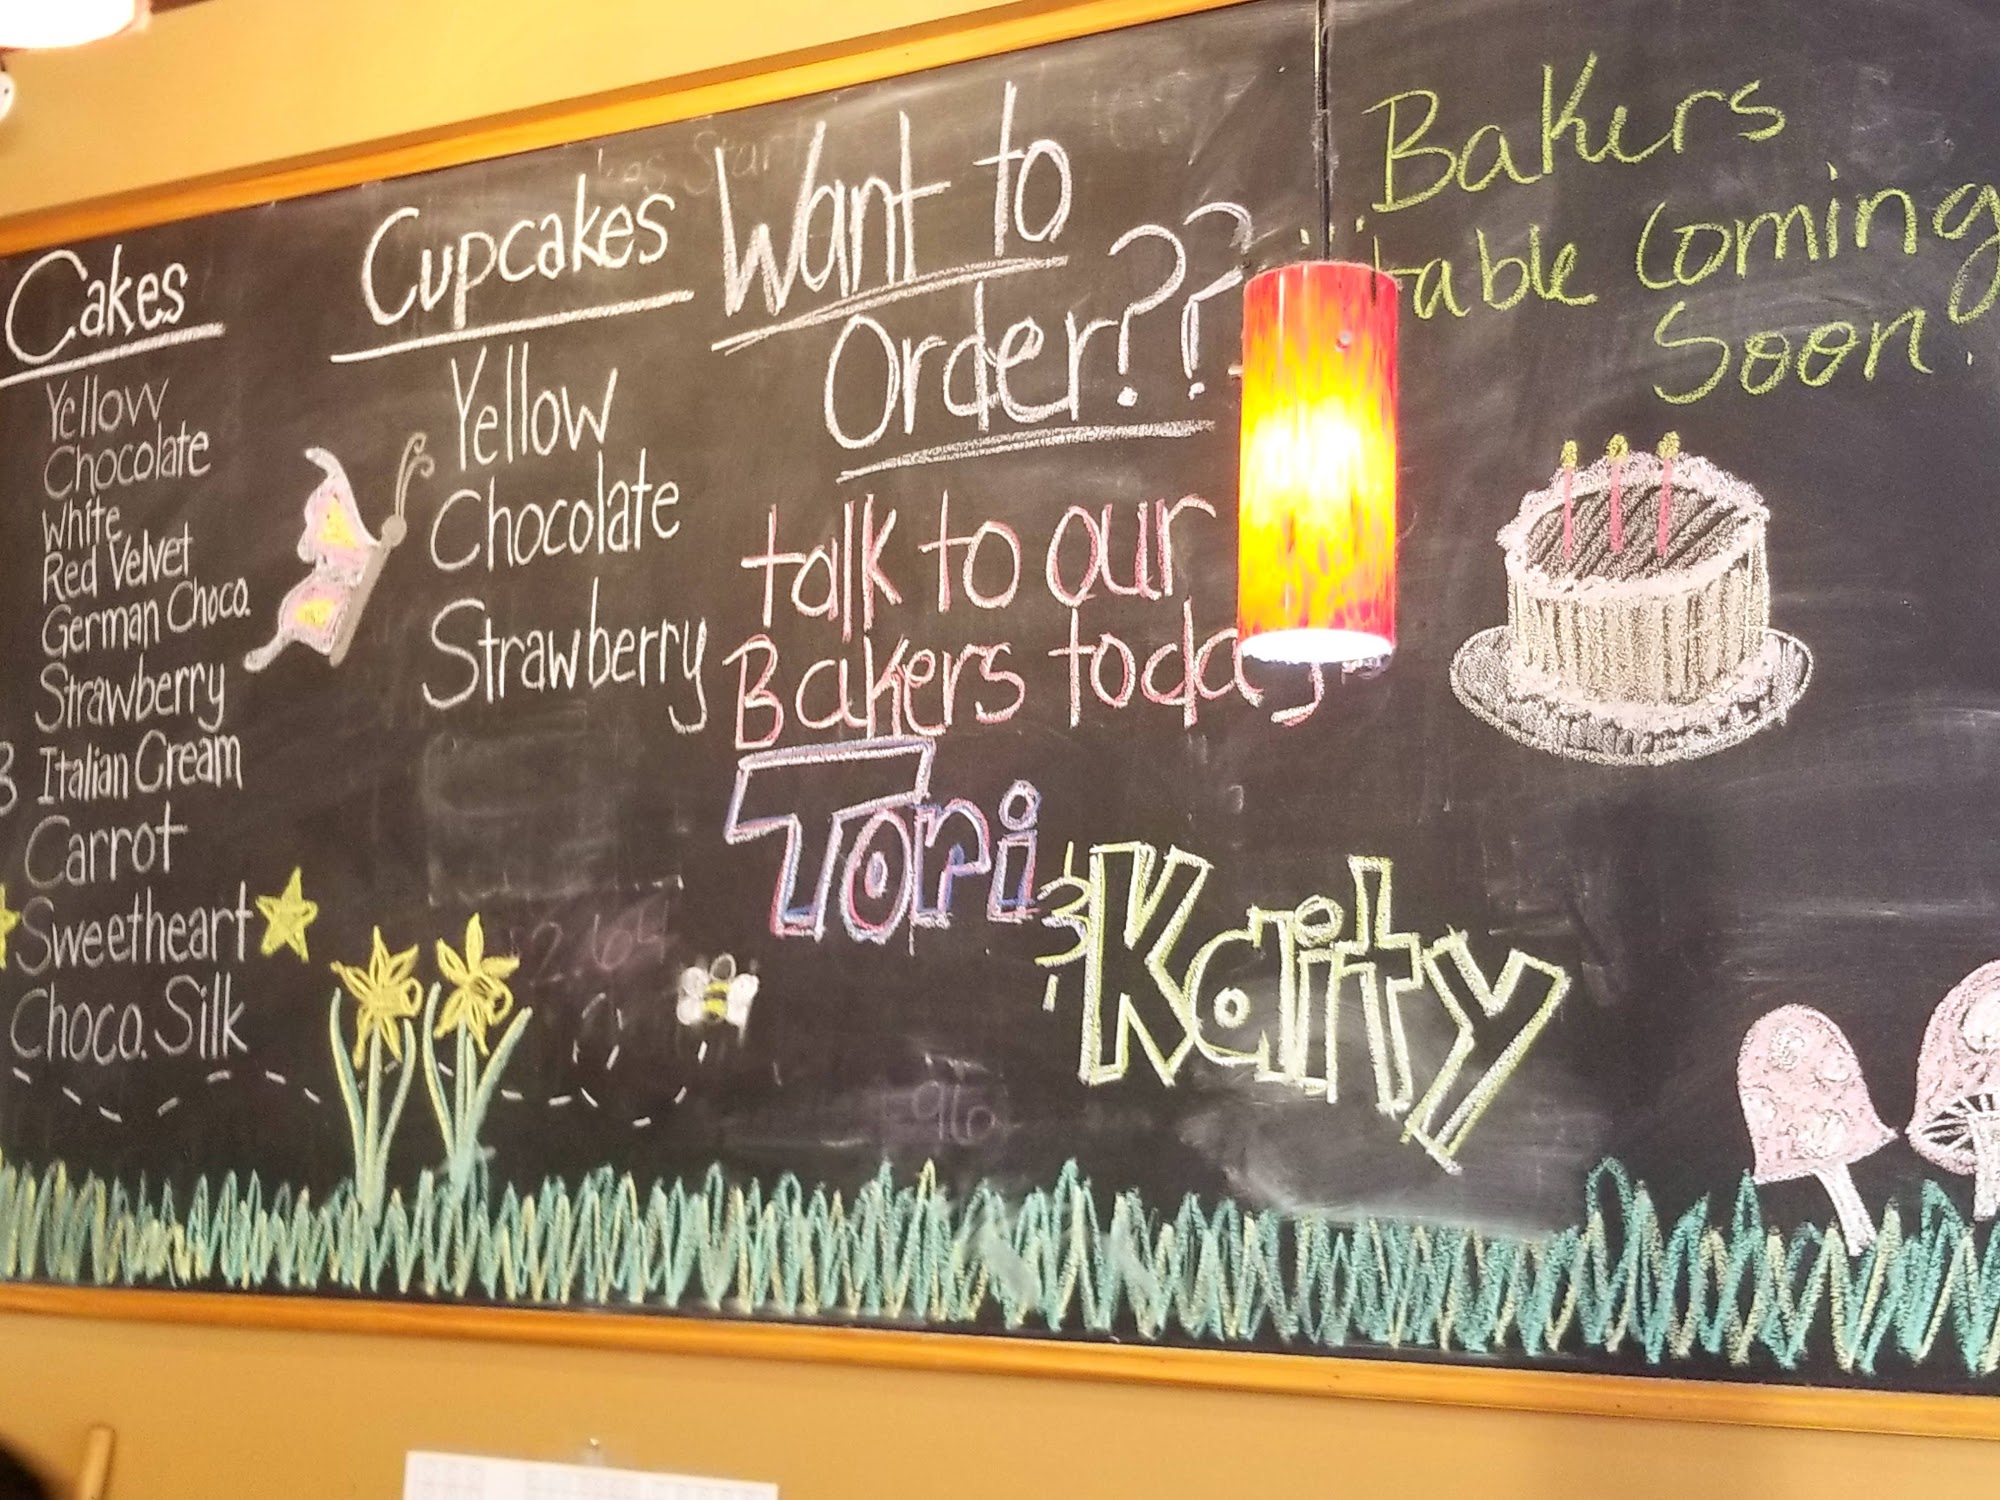 Cakes
Yellow
Chocolate
White
Red Velvet
German Choco.
Strawberry
Italian Cream
Carrot
Sweetheart
Choco. Silk
Cupcakes
Yellow
Chocolate
Strawberry
Want to
Order??
talk to our
Bakers today
Tori
& Kaity
Bakers
table Coming
Soon.
$2.64
96